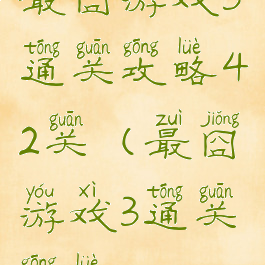 最囧游戏3
tōng guān gōng lüè
通关攻略4
guān zuì jiǒng
2关(最囧
yóu xì tōng guān
游戏3通关
gōng lüè